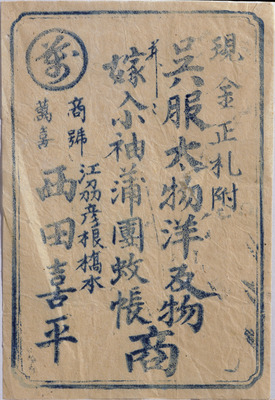 現金正札附
呉服太物洋反物
并ニ
嫁入小袖蒲團蚊帳
商
江州彦根橋本
商號
萬喜
西田喜平